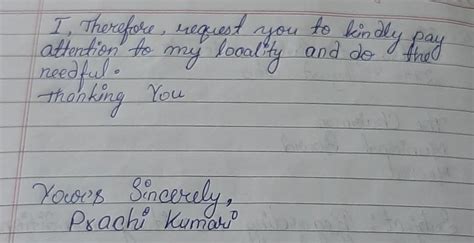 I, Therefore, request you to kindly pay
attention to my locality and do the
needful.
Thanking You
Your's Sincerely,
Prachi Kumari